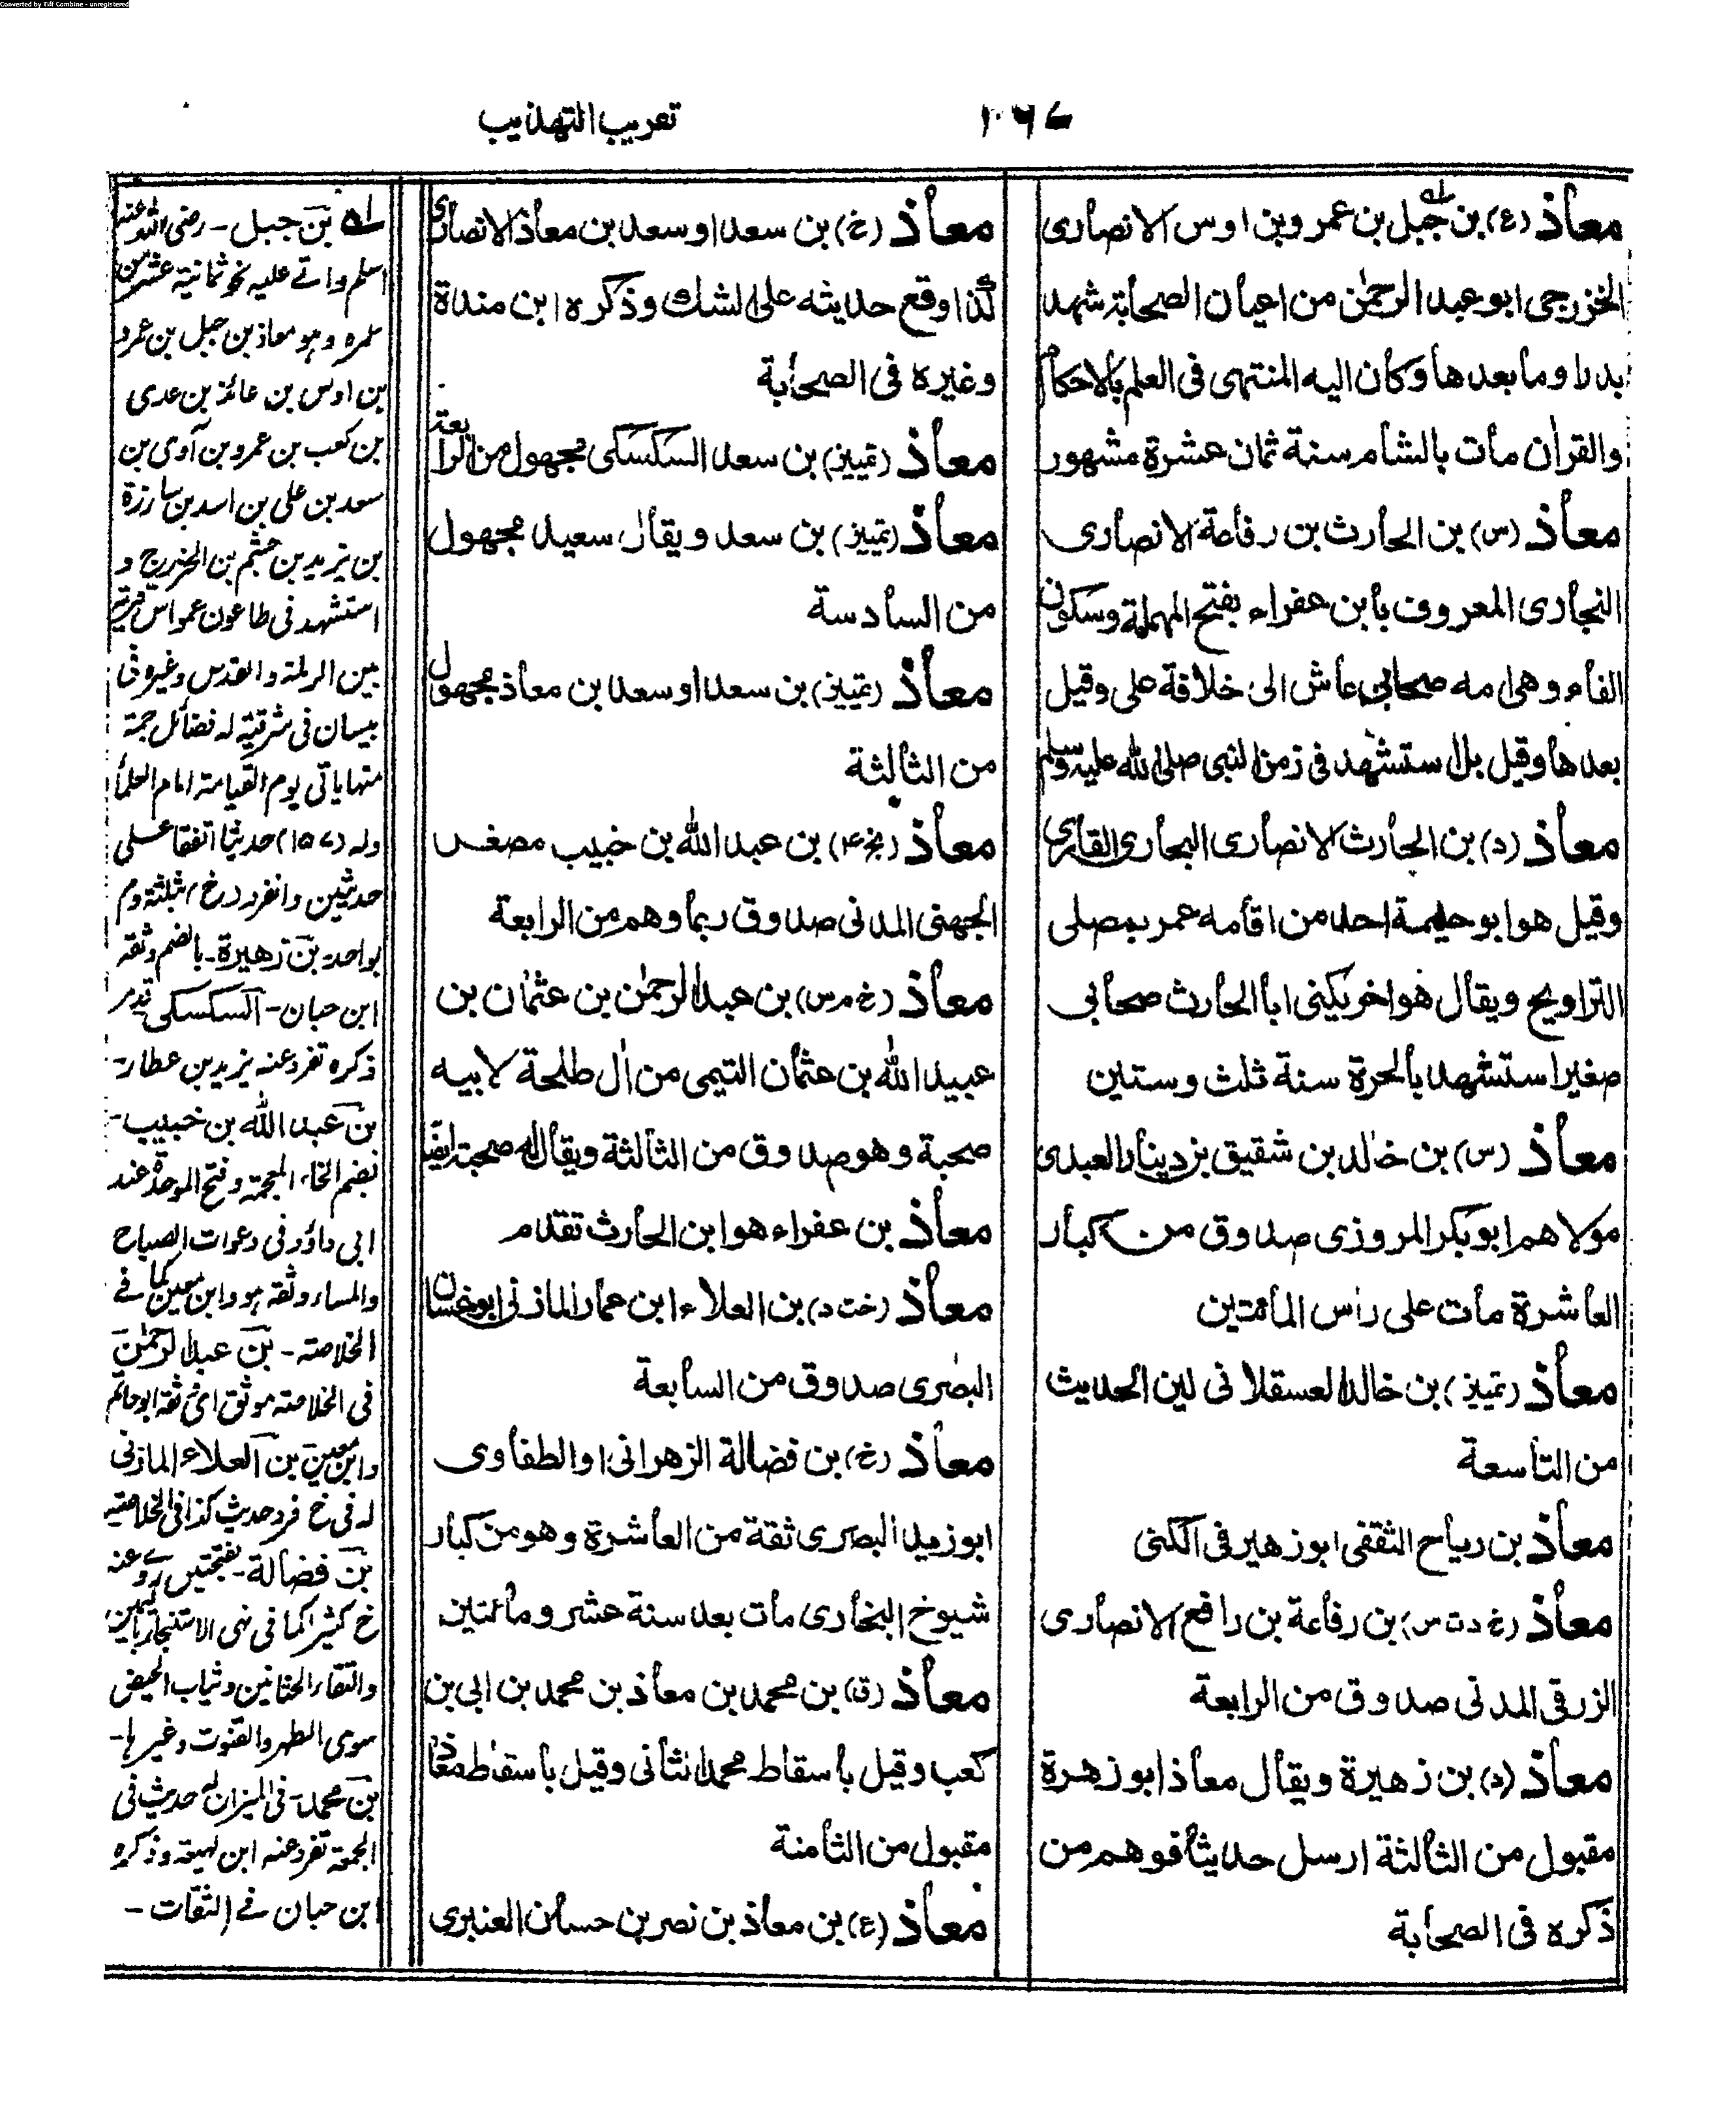 Converted by Tiff Combine - unregistered
تقريب التهذيب
معاذ (ع) بن جبل بن عمرو بن اوس الانصارى
الخزرجى ابو عبد الرحمٰن من اعيان الصحابة شهد
بدرا وما بعدها وكان اليه المنتهى فى العلم بالاحكام
والقراٰن مات بالشام سنة ثمان عشرة مشهور
معاذ (س) بن الحارث بن رفاعة الانصارى
النجارى المعروف بابن عفراء بفتح المهملة وسكون
الفاء وهى امه صحابى عاش الى خلافة على وقيل
بعدها وقيل بل استشهد فى زمن النبى صلى الله عليه وسلم
معاذ (د) بن الحارث الانصارى النجارى القارى
وقيل هو ابو حليمة احد من اقامه عمر بمصلى
التراويح ويقال هو اخر يكنى ابا الحارث صحابى
صغير استشهد بالحرة سنة ثلث وستين
معاذ (س) بن خالد بن شقيق بن دينار العبدى
مولاهم ابو بكر المروزى صدوق من كبار
العاشرة مات على راس المائتين
معاذ (تمييز) بن خالد العسقلانى لين الحديث
من التاسعة
معاذ بن رياح الثقفى ابو زهير فى الكنى
معاذ (خ د ت س) بن رفاعة بن رافع الانصارى
الزرقى المدنى صدوق من الرابعة
معاذ (د) بن زهيرة ويقال معاذ ابو زهرة
مقبول من الثالثة ارسل حديثا فوهم من
ذكره فى الصحابة
معاذ (خ) بن سعد او سعد بن معاذ الانصارى
كذا وقع حديثه على الشك وذكره ابن مندة
وغيره فى الصحابة
معاذ (تمييز) بن سعد السكسكى مجهول من الرابعة
معاذ (تمييز) بن سعد ويقال سعيد مجهول
من السادسة
معاذ (تمييز) بن سعد او سعد بن معاذ مجهول
من الثالثة
معاذ (بخ ۴) بن عبد الله بن خبيب مصغر
الجهنى المدنى صدوق ربما وهم من الرابعة
معاذ (خ م س) بن عبد الرحمٰن بن عثمان بن
عبيد الله بن عثمان التيمى من اٰل طلحة لابيه
صحبة وهو صدوق من الثالثة ويقال له صحبة ايضا
معاذ بن عفراء هو ابن الحارث تقدم
معاذ (خت د) بن العلاء ابن عمار المازنى ابو غسان
البصرى صدوق من السابعة
معاذ (خ) بن فضالة الزهرانى او الطفاوى
ابو زيد البصرى ثقة من العاشرة وهو من كبار
شيوخ البخارى مات بعد سنة عشر ومائتين
معاذ (ق) بن محمد بن معاذ بن محمد بن ابى بن
كعب وقيل باسقاط محمد الثانى وقيل باسقاط معاذ
مقبول من الثامنة
معاذ (ع) بن معاذ بن نصر بن حسان العنبرى
بن جبل - رضى الله عنه
اسلم واتے عليه نحو ثمانية عشر من
عمره وہو معاذ بن جبل بن عمرو
بن اوس بن عائذ بن عدى
بن كعب بن عمرو بن آدى بن
سعد بن على بن اسد بن ساردة
بن يزيد بن جشم بن الخزرج و
استشهد فى طاعون عمواس قرية
بين الرملة والقدس وغيره فى
بيسان فى شرقيه له فضائل جمة
منها ياتى يوم القيامة امام العلماء
وله (۱۵۷) حديثا اتفقا على
حديثين وانفرد (خ) بثلثة وم
بواحد - بن زهيرة - بالضم وثقه
ابن حبان - السكسكى قدم
ذكره تفرد عنه يزيد بن عطاء -
بن عبد الله بن خبيب -
بضم الخاء المعجمة وفتح الموحدة عند
ابى داؤد فى دعوات الصباح
والمساء وثقه ہو وابن معين كما فے
الخلاصة - بن عبد الرحمٰن
فى الخلاصة موثق اى ثقة ابو حاتم
وابن معين بن العلاء المازنى
له فى خ فرد حديث كذا فى الخلاصة
بن فضالة - بفتحتين روے عنه
خ كثيرا كما فى نهى الاستنجاء باليمين
والتقاء الختانين وثياب الحيض
سوى الطهر والقنوت وغيرها -
بن محمد - فى الميزان له حديث فى
الجمعة تفرد عنه ابن لهيعة وذكره
ابن حبان فے الثقات -